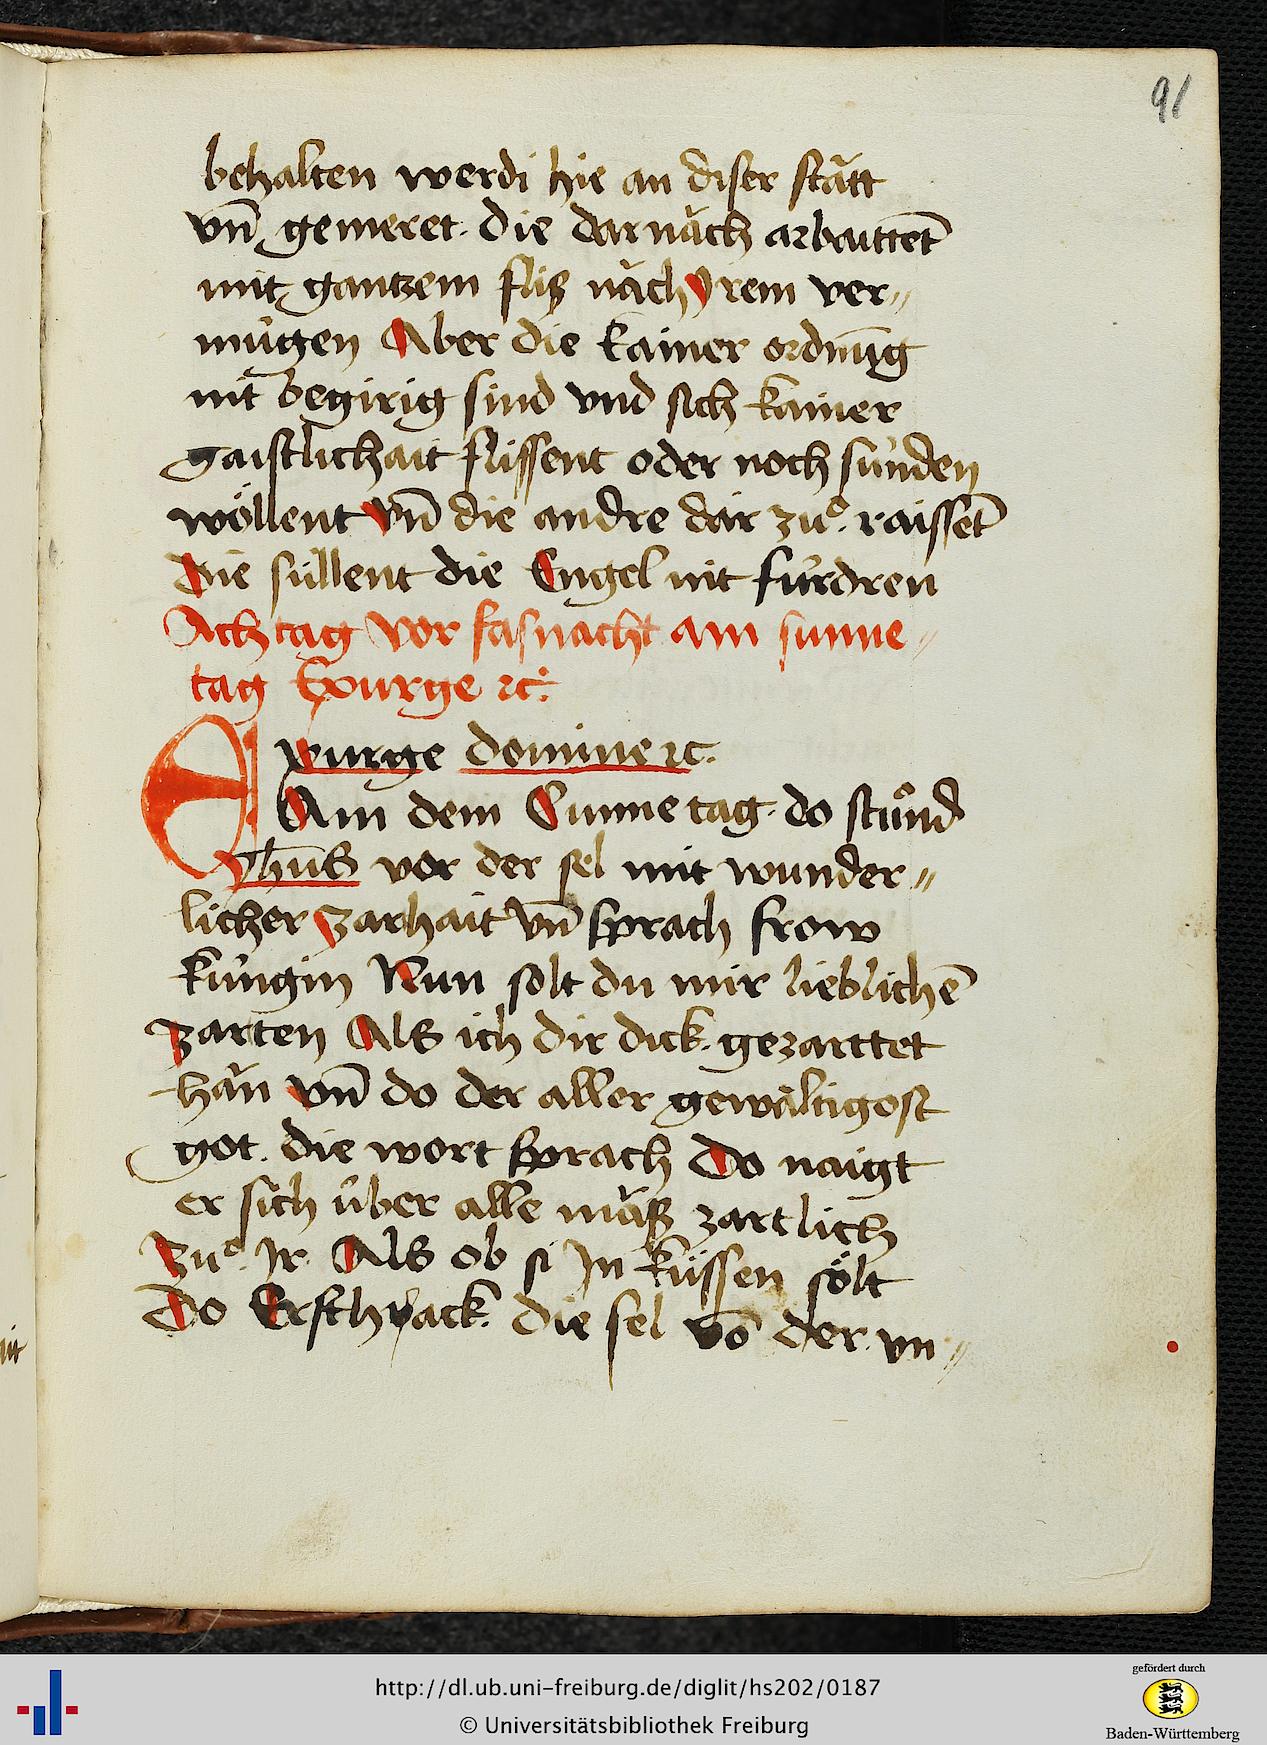 91
behalten werdi hie an diser stätt
vn̄ gemeret. die darnăch arbaittet̄
mit gantzem fliß năch yrem ver〃
mu̇gen Aber die kainer ordnu̅g
nit begirig sind vnd sich kainer
gaistlichait flissent oder noch su̇nden
wöllent vn̄ die andre dar zuͦ. raisset̄
Die süllent die Engel nit fu̇rdren
Ach tag vor fasnacht am sunne〃
tag Exurge ꝛc:
Exurge domine ꝛc.
Am dem Sunnetag. do stuͦnd
Yhūs vor der sel mit wunder〃
licher zarhait vn̄ sprach frow
ku̇ngin Nun solt du mir lieblichē
zarten Als ich dir dick. gezarttet
hăn vn̄ do der aller gewältigost
got. die wort sprach Do naigt
er sich u̇ber alle măß zartlich
zuͦ. Jr. Als ob si Jn küssen sölt
Do Erschrack. die sel vō der. vn〃
http://dl.ub.uni-freiburg.de/diglit/hs202/0187
© Universitätsbibliothek Freiburg
gefördert durch
Baden-Württemberg